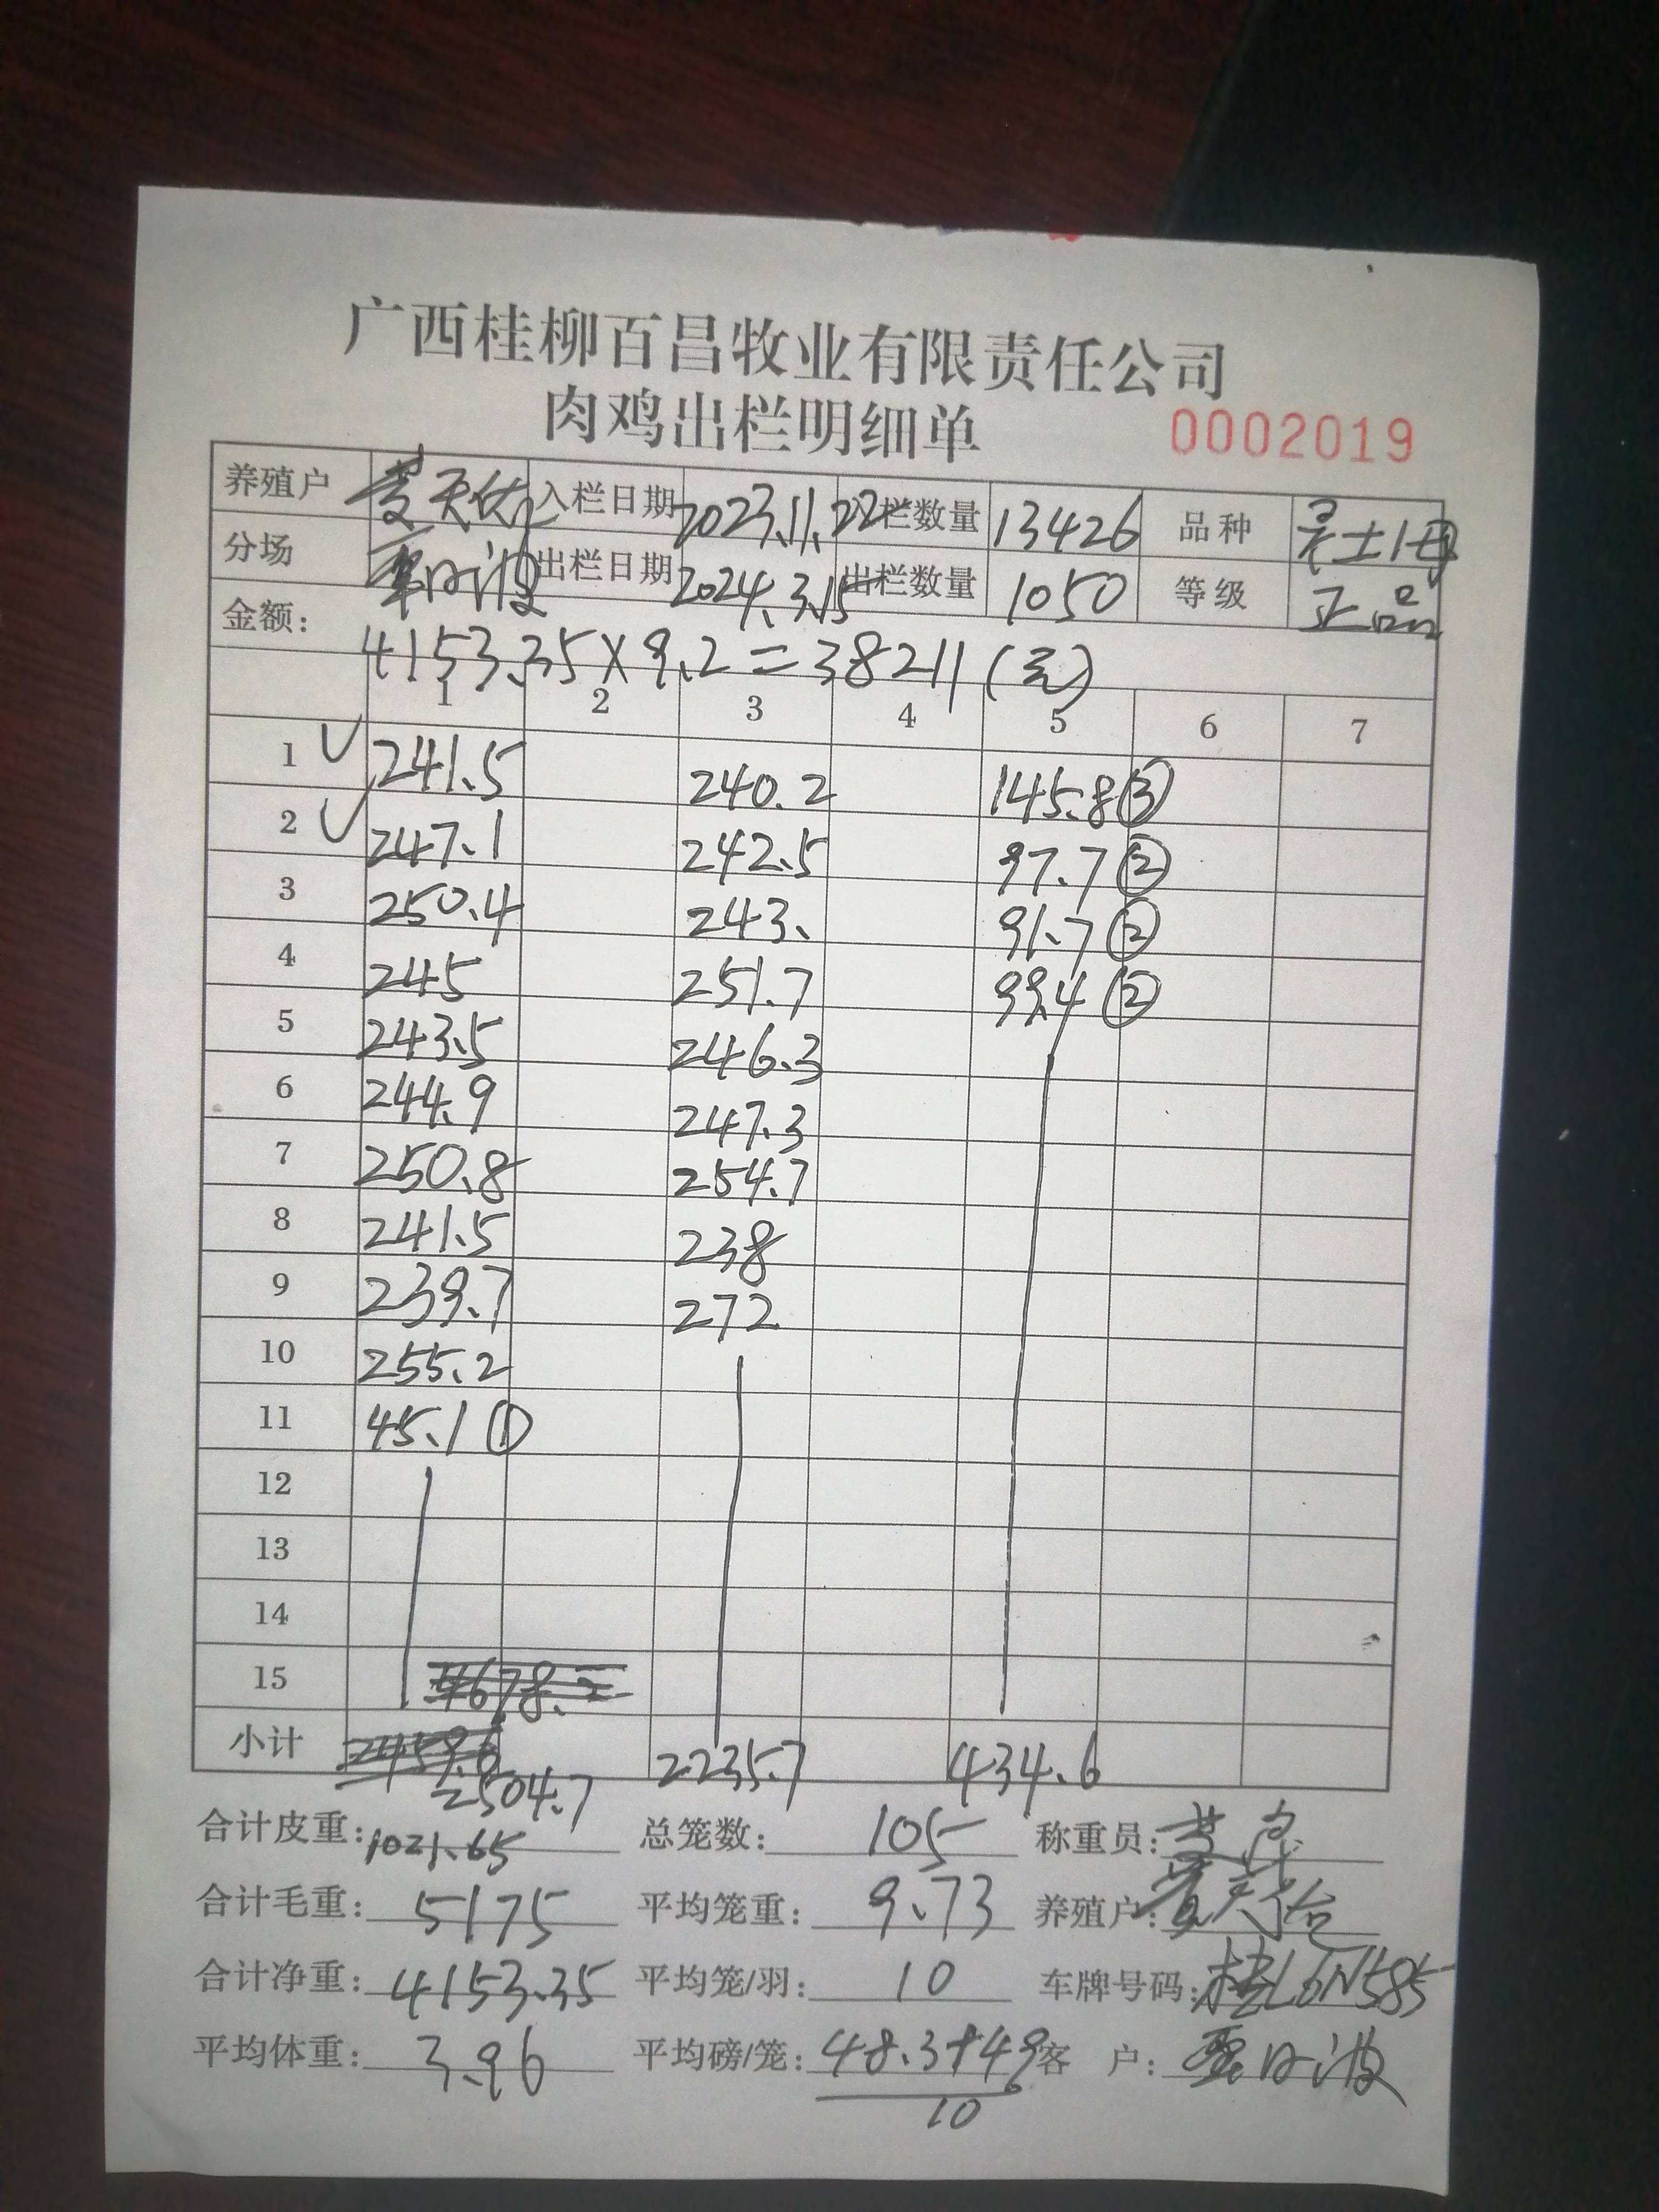 广西桂柳百昌牧业有限责任公司
肉鸡出栏明细单 0002019
养殖户 入栏日期 2023.11.22 入栏数量 13426 品种
分场 出栏日期 2024.3.15 出栏数量 1050 等级 正品
金额: 4153.35×9.2=38211(元)
1 2 3 4 5 6 7
1 241.5 240.2 145.8③
2 247.1 242.5 97.7②
3 250.4 243. 91.7②
4 245 251.7 99.4②
5 243.5 246.3
6 244.9 247.3
7 250.8 254.7
8 241.5 238
9 239.7 272
10 255.2
11 45.1①
12
13
14
15 4678.2
小计 2459.6 2504.7 2235.7 434.6
合计皮重: 1021.65 总笼数: 105 称重员:
合计毛重: 5175 平均笼重: 9.73 养殖户:
合计净重: 4153.35 平均笼/羽: 10 车牌号码: 桂L6N585
平均体重: 3.96 平均磅/笼: 48.3+49 客 户:
10